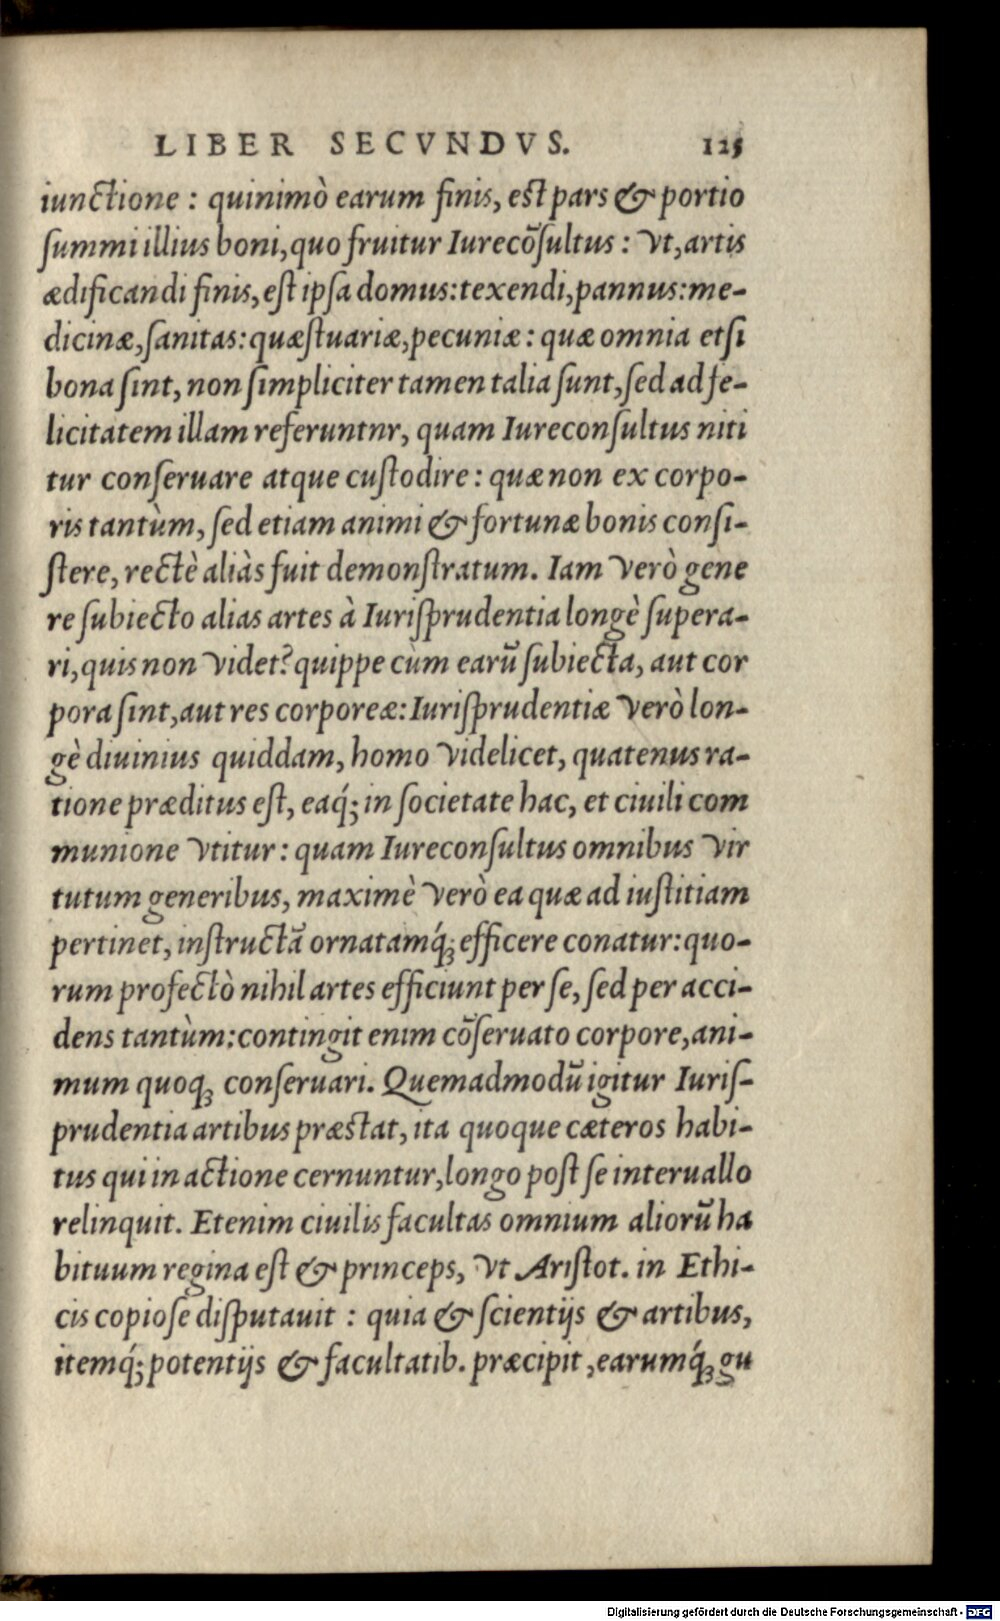 LIBER SECVNDVS. 125
iunctione : quinimò earum finis, est pars & portio
ſummi illius boni, quo fruitur Iurecõſultus : vt, artis
ædificandi finis, eſt ipſa domus: texendi, pannus: me-
dicinæ, ſanitas: quæſtuariæ, pecuniæ : quæ omnia etſi
bona ſint, non ſimpliciter tamen talia ſunt, ſed ad fe-
licitatem illam referuntnr, quam Iureconſultus niti
tur conſeruare atque cuſtodire : quæ non ex corpo-
ris tantùm, ſed etiam animi & fortunæ bonis conſi-
ſtere, rectè aliàs fuit demonſtratum. Iam verò gene
re ſubiecto alias artes à Iuriſprudentia longè ſupera-
ri, quis non videt? quippe cùm earũ ſubiecta, aut cor
pora ſint, aut res corporeæ: Iuriſprudentiæ verò lon-
gè diuinius quiddam, homo videlicet, quatenus ra-
tione præditus eſt, eaq́; in ſocietate hac, et ciuili com
munione vtitur : quam Iureconſultus omnibus vir
tutum generibus, maximè verò ea quæ ad iuſtitiam
pertinet, inſtructã ornatamq́; efficere conatur: quo-
rum profectò nihil artes efficiunt per ſe, ſed per acci-
dens tantùm: contingit enim cõſeruato corpore, ani-
mum quoq; conſeruari. Quemadmodũ igitur Iuriſ-
prudentia artibus præstat, ita quoque cæteros habi-
tus qui in actione cernuntur, longo poſt ſe interuallo
relinquit. Etenim ciuilis facultas omnium aliorũ ha
bituum regina eſt & princeps, vt Ariſtot. in Ethi-
cis copioſe diſputauit : quia & ſcientijs & artibus,
itemq́; potentijs & facultatib. præcipit, earumq́; gu
Digitalisierung gefördert durch die Deutsche Forschungsgemeinschaft - DFG